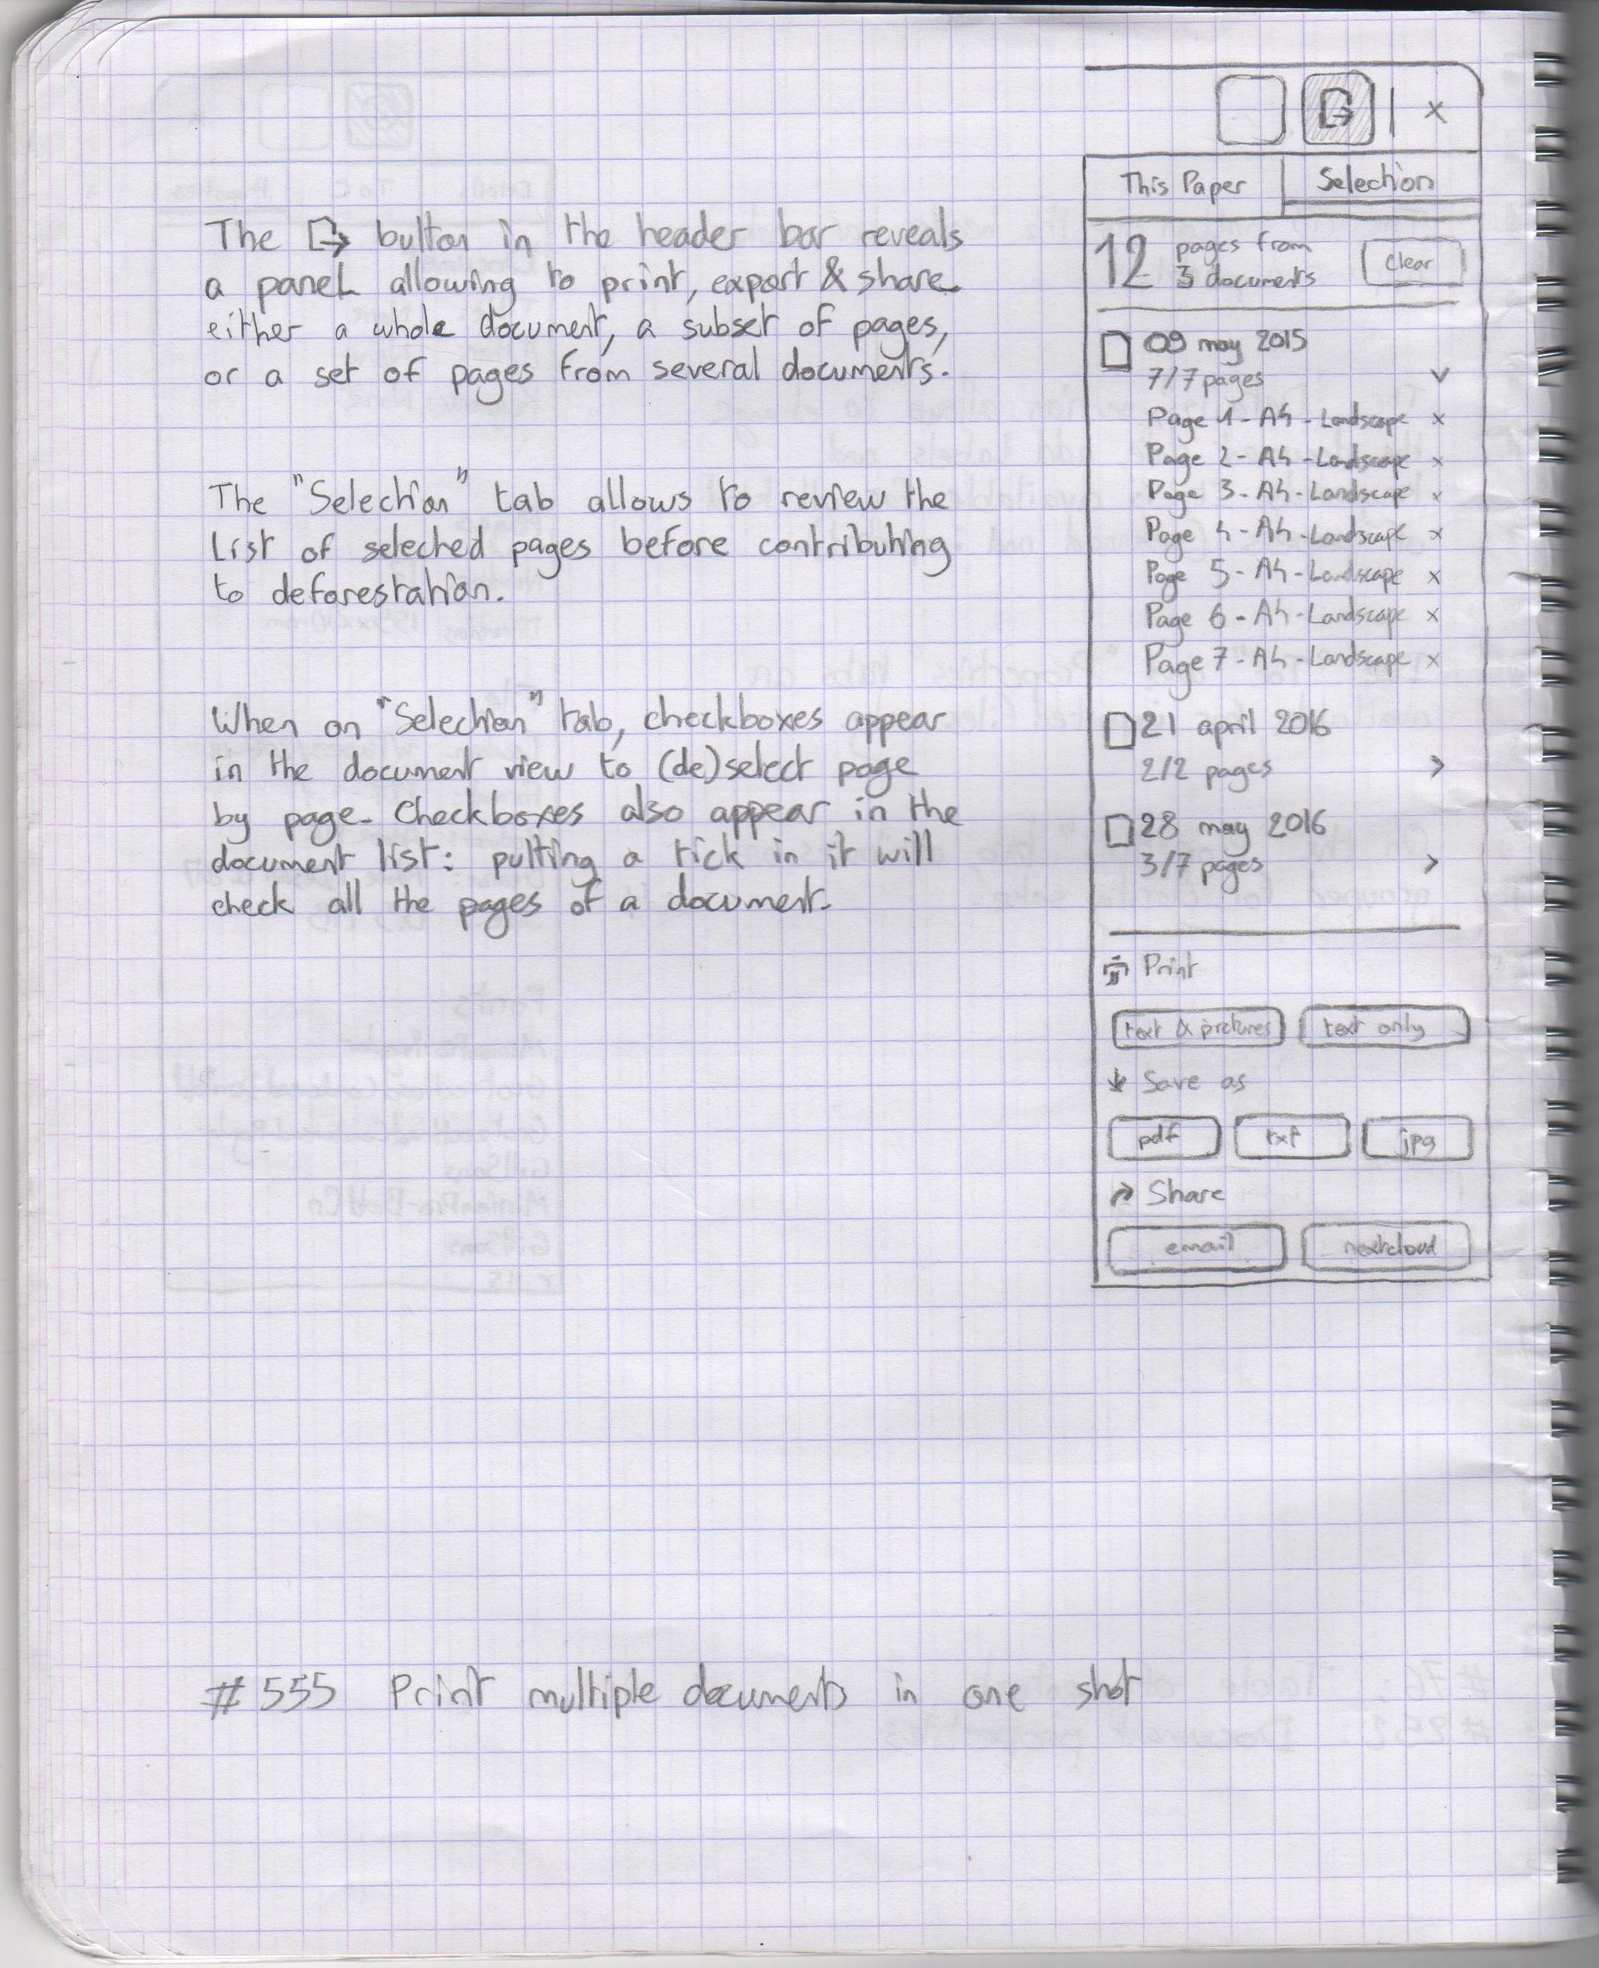 The button in the header bar reveals
a panel allowing to print, export & share
either a whole document, a subset of pages,
or a set of pages from several documents.
The "Selection" tab allows to review the
List of selected pages before contributing
to deforestation.
When on "Selection" tab, checkboxes appear
in the document view to (de)select page
by page. Checkboxes also appear in the
document list: putting a tick in it will
check all the pages of a document.
x
This Paper Selection
12 pages from
3 documents
Clear
09 may 2015
7/7 pages
Page 1 - A4 - Landscape x
Page 2 - A4 - Landscape x
Page 3 - A4 - Landscape x
Page 4 - A4 - Landscape x
Page 5 - A4 - Landscape x
Page 6 - A4 - Landscape x
Page 7 - A4 - Landscape x
21 april 2016
2/2 pages
28 may 2016
3/7 pages
Print
text & pictures text only
Save as
pdf txt jpg
Share
email nextcloud
#555 Print multiple documents in one shot